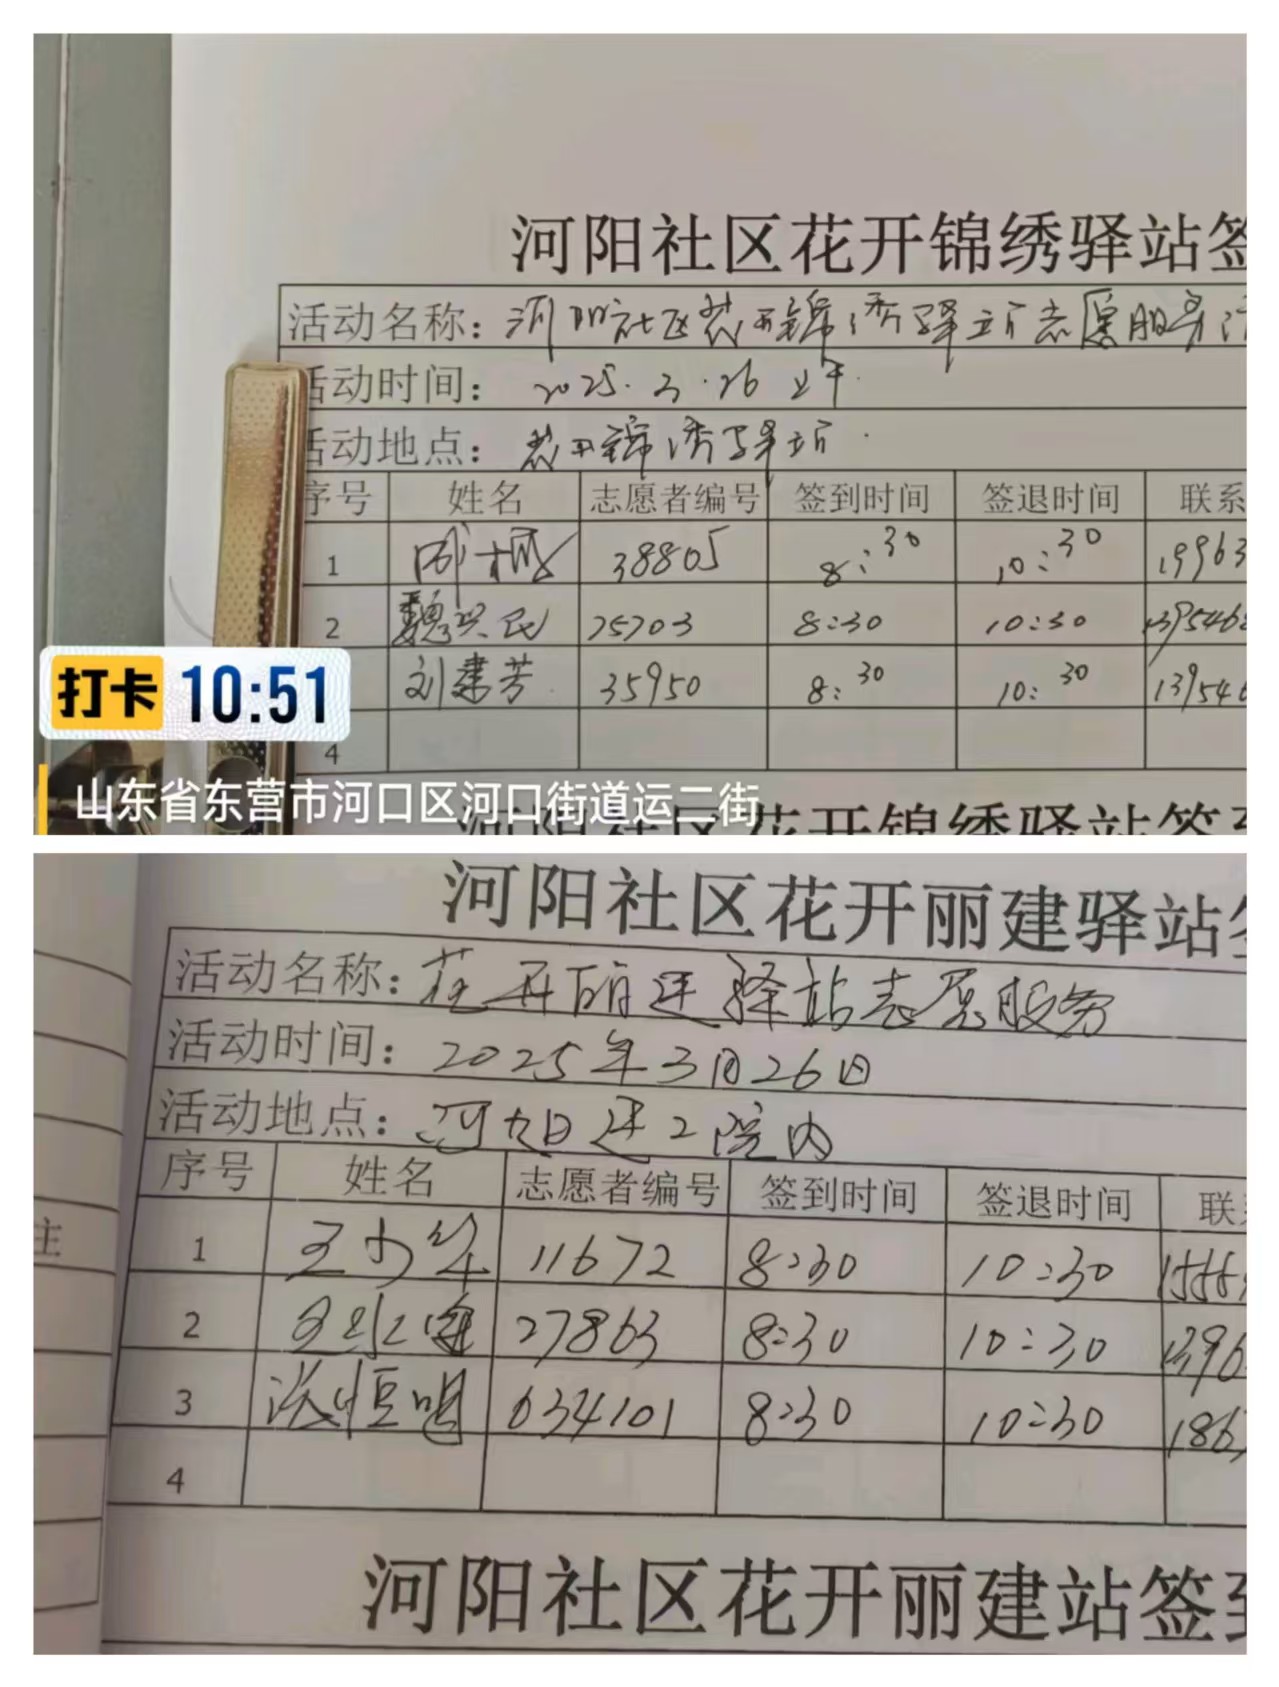 河阳社区花开锦绣驿站签
活动名称：河阳社区花开锦绣驿站志愿服务活
活动时间：2025.3.26上午.
活动地点：花开锦绣驿站.
序号 姓名 志愿者编号 签到时间 签退时间 联系
1 38805 8:30 10:30 19963
2 魏兴民 25703 8:30 10:30 1395468
刘建芳 35950 8:30 10:30 139546
4
打卡 10:51
山东省东营市河口区河口街道运二街
河阳社区花开锦绣驿站签到
河阳社区花开丽建驿站签
活动名称：花开丽建驿站志愿服务
活动时间：2025年3月26日
活动地点：河旭建二院内
序号 姓名 志愿者编号 签到时间 签退时间 联系
主
1 王少华 11672 8:30 10:30 1555
2 27863 8:30 10:30 1396
3 634101 8:30 10:30 186
4
河阳社区花开丽建站签到